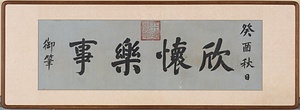 癸酉秋日
欣懷樂事
御筆